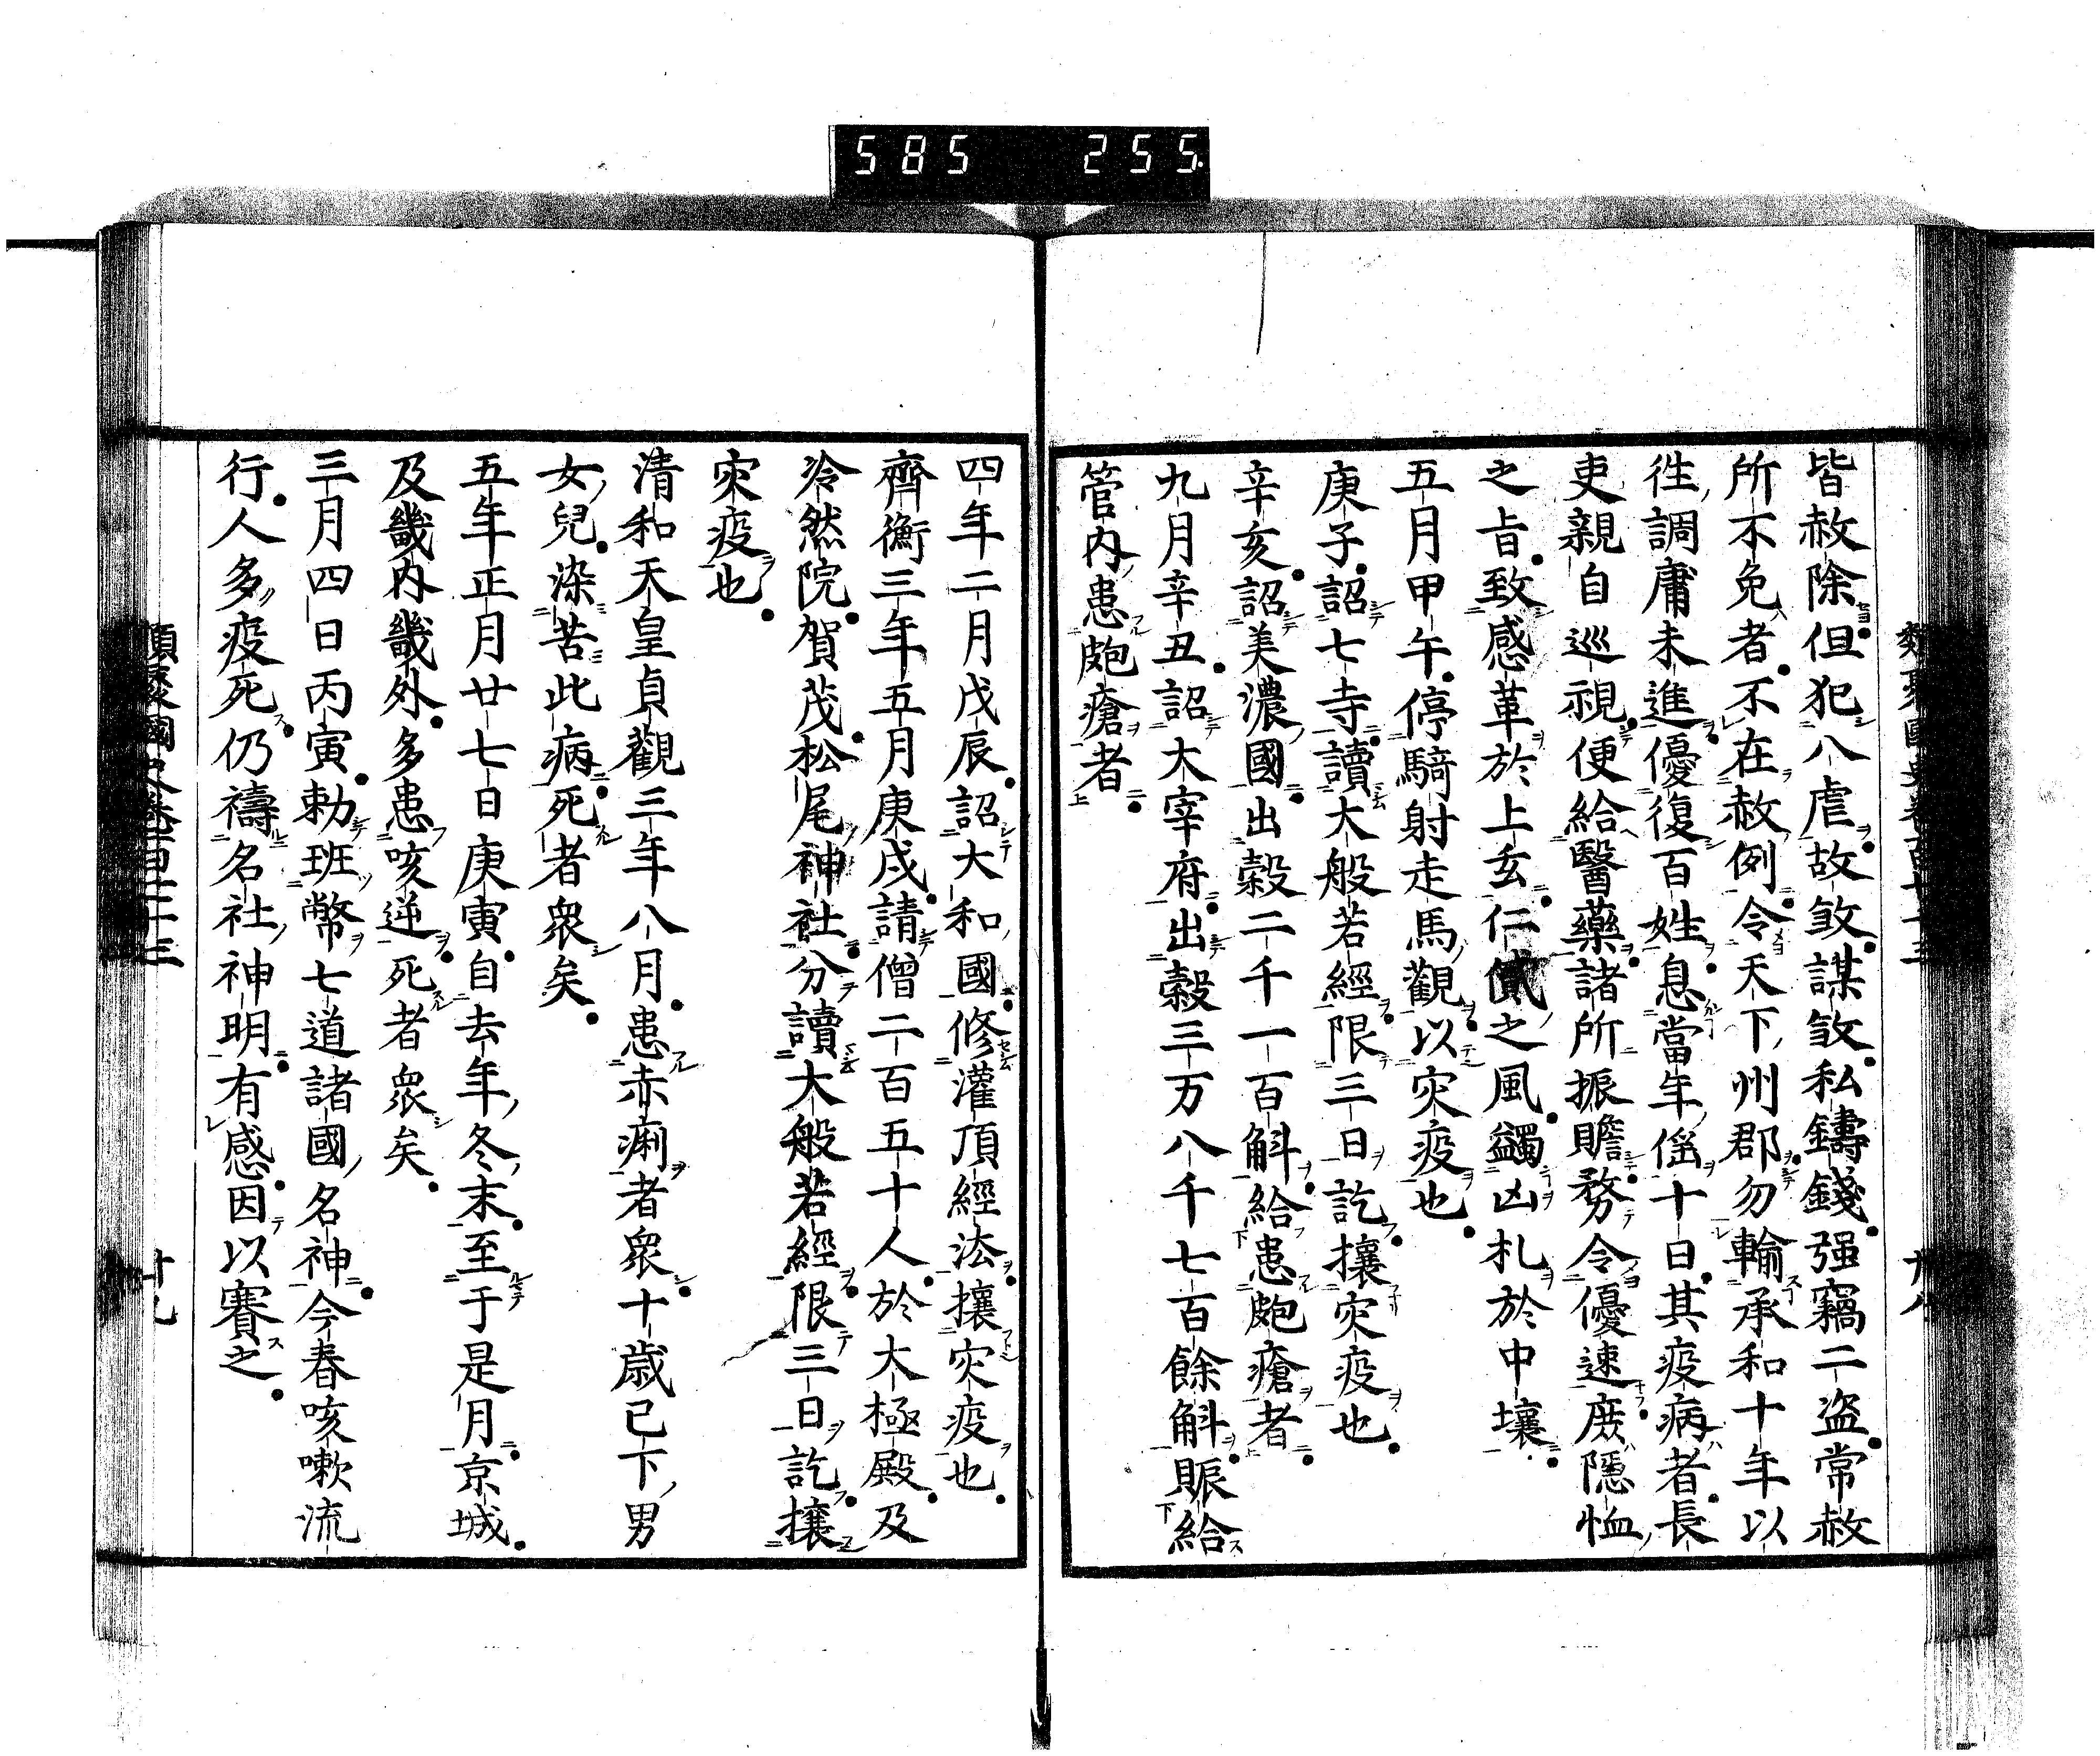 585 255
皆赦除但犯八虐故殺謀殺私鑄錢强竊二盗常赦
所不免者不在赦例令天下州郡勿輸承和十年以
徃調庸未進優復百姓息當年徭十日其疫病者長
吏親自巡視便給醫藥諸所振贍務令優速庶隱恤
之旨致感革於上玄仁貳之風蠲凶札於中壤
五月甲午停騎射走馬觀以灾疫也
庚子詔七寺讀大般若經限三日訖攘灾疫也
辛亥詔美濃國出穀二千一百斛給患皰瘡者
九月辛丑詔大宰府出穀三万八千七百餘斛賑給
管内患皰瘡者
四年二月戊辰詔大和國修灌頂經法攘灾疫也
齊衡三年五月庚戌請僧二百五十人於大極殿及
冷然院賀茂松尾神社分讀大般若經限三日訖攘
灾疫也
清和天皇貞觀三年八月患赤痢者衆十歲已下男
女兒染苦此病死者衆矣
五年正月廿七日庚寅自去年冬末至于是月京城
及畿内畿外多患咳逆死者衆矣
三月四日丙寅勅班幣七道諸國名神今春咳嗽流
行人多疫死仍禱名社神明有感因以賽之